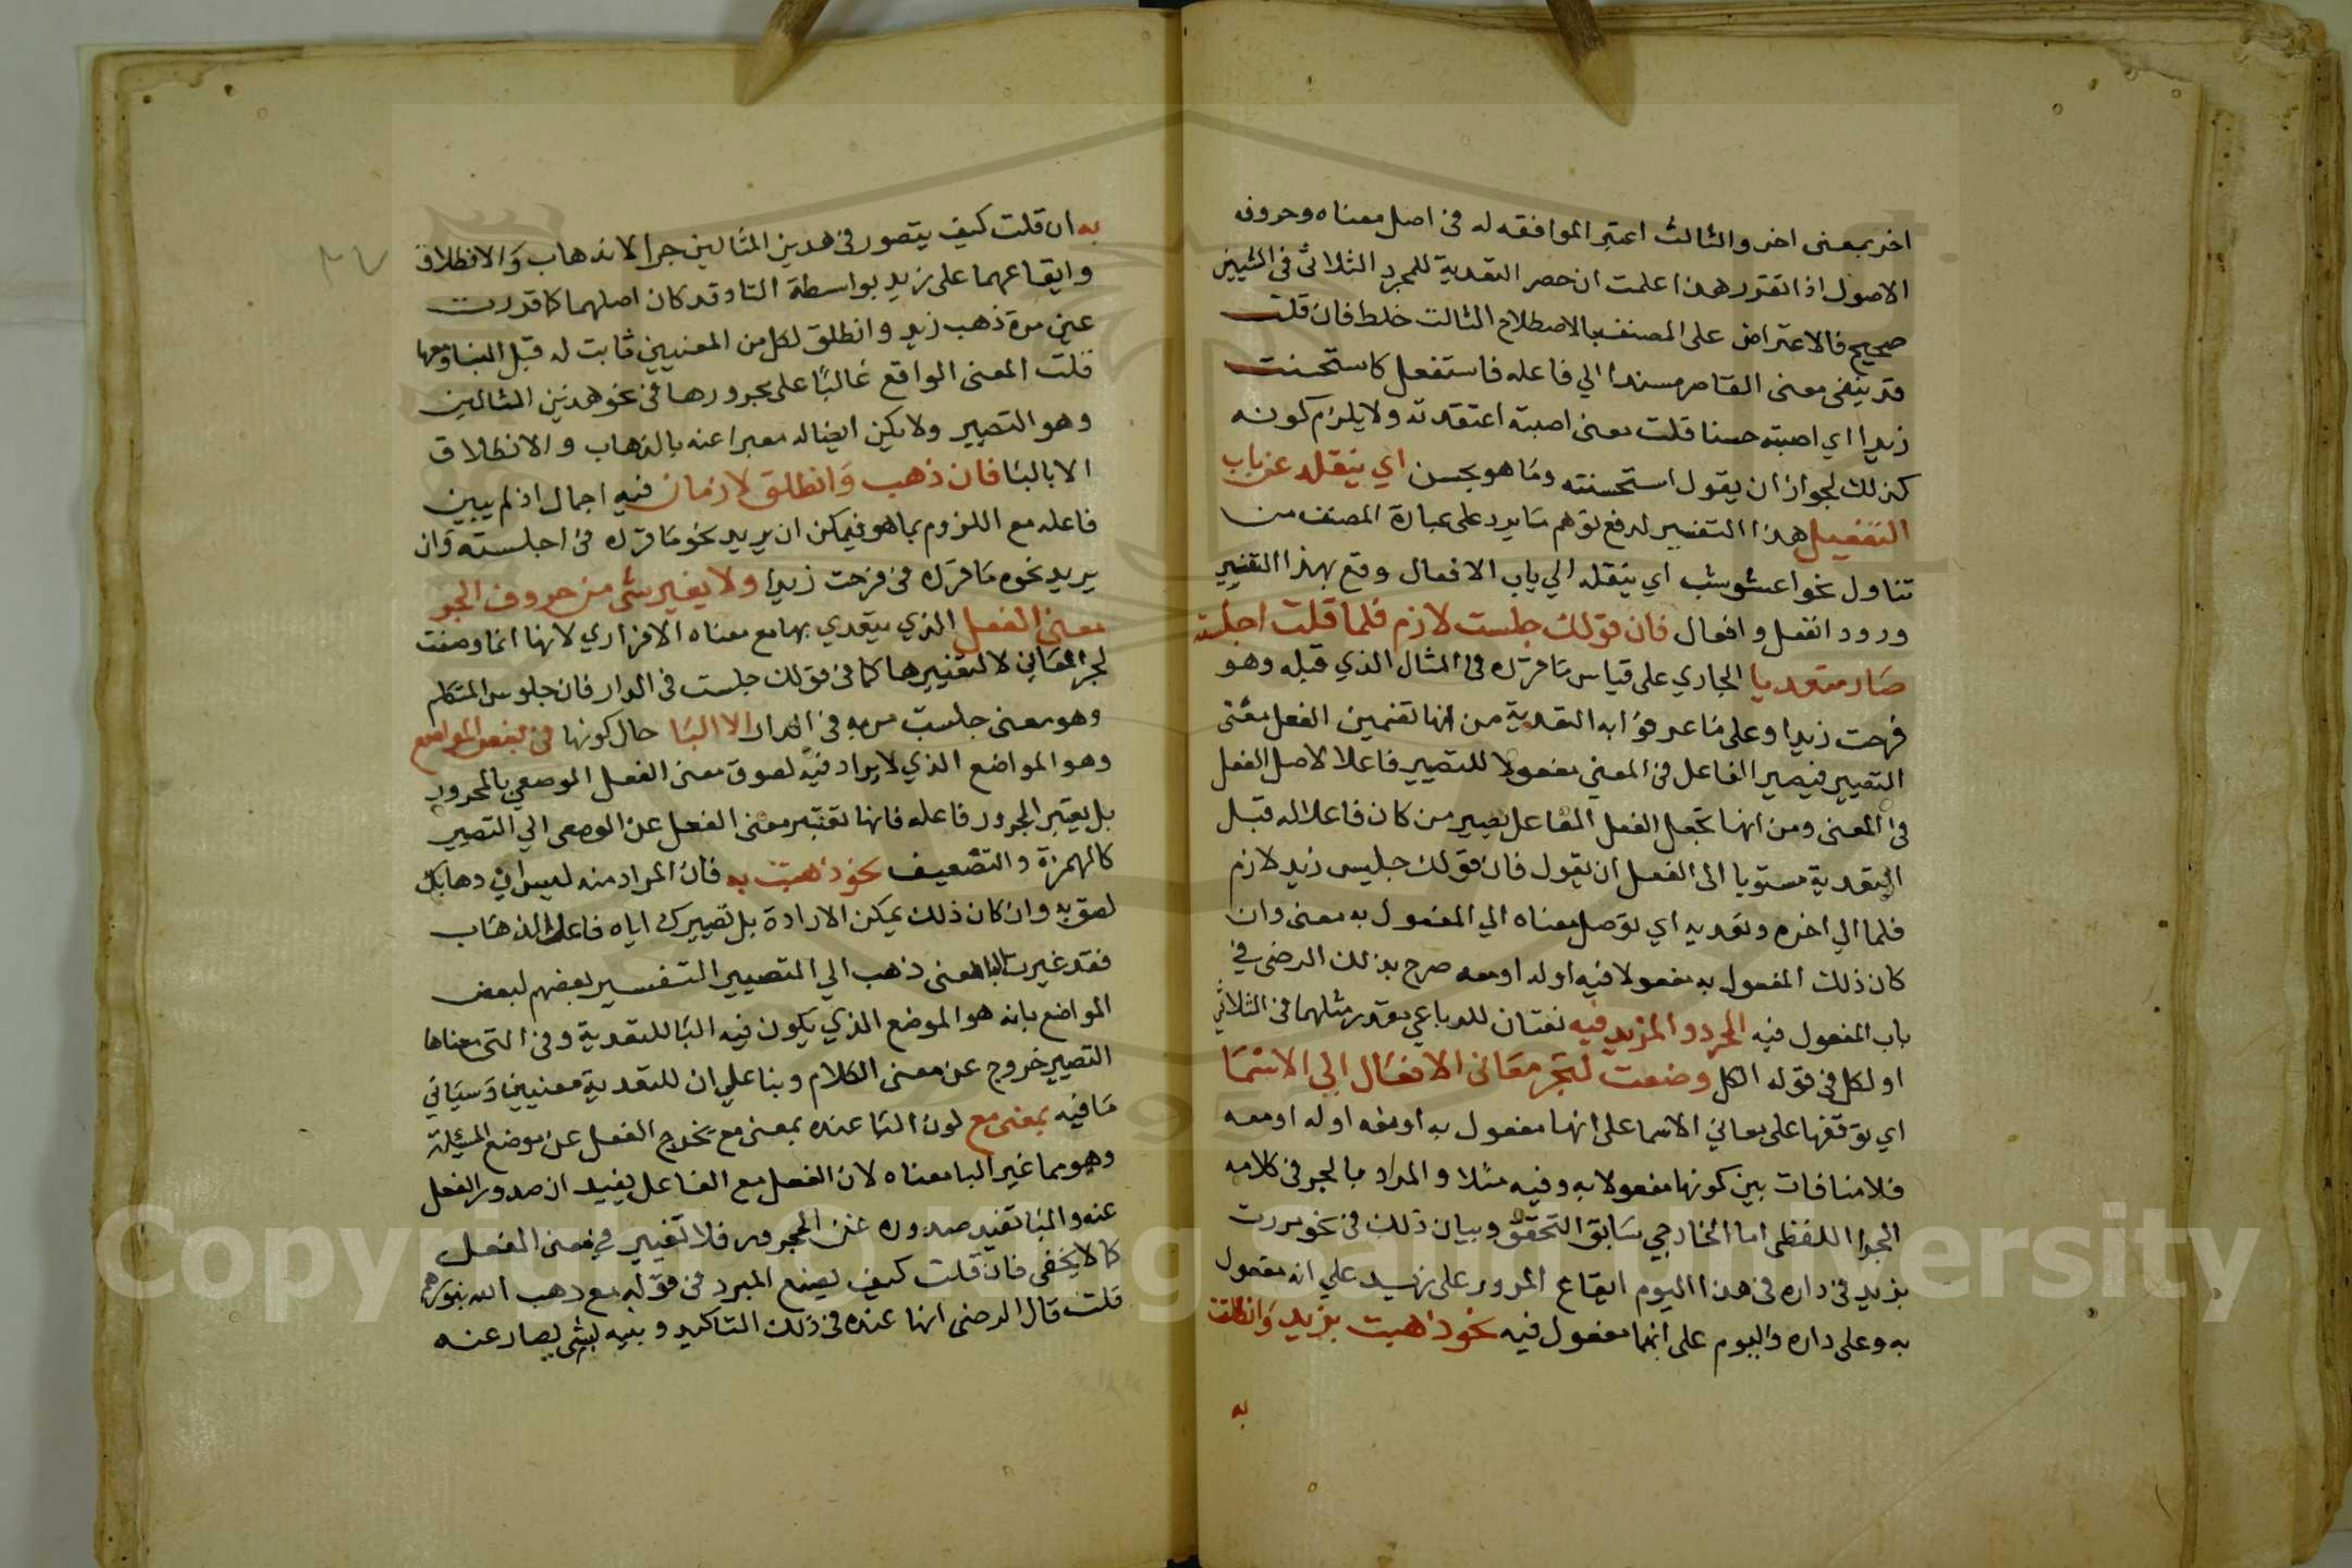 اخر بمعنى اخر والثالث اعتبر الموافقه له فى اصل معناه وحروفه
الاصول اذا تقرر هذا علمت ان حصر التعدية للمجرد الثلاثى فى الشيين
صحيح فالاعتراض على المصنف بالاصطلاح الثالث خلط فان قلت
قد ينفى معنى القاصر مسندا الي فاعله فاستفعل كاستحسنت
زيدا اي اصبته حسنا قلت معنى اصبته اعتقدته ولا يلزم كونه
كذلك لجواز ان يقول استحسنته وما هو بحسن اي ينقله عن باب
التفعيل هذا التفسير لدفع توهم ما يرد على عبارة المصنف من
تناول نحو اعشوشب اي ينقله الي باب الافعال وقع بهذا التفسير
ورود انفعل وافعال فان قولك جلست لازم فلما قلت اجلسته
صار متعديا الجاري على قياس ما قرره فى المثال الذي قبله وهو
فرحت زيدا وعلى ما عرفوا به التعدية من انها تضمين الفعل معنى
التصيير فيصير الفاعل فى المعنى مفعولا للتصيير فاعلا لاصل الفعل
فى المعنى ومن انها تجعل الفعل الفاعل يصير من كان فاعلا له قبل
التعدية مستويا الى الفعل ان يقول فان قولك جليس زيد لازم
فلما الي اخره وتعديه اي توصل معناه الي المفعول به معنى وان
كان ذلك المفعول به مفعولا فيه او له او معه صرح بذلك الرضى في
باب المفعول فيه المجرد والمزيد فيه نعتان للرباعي مقدر مثلهما فى الثلاثي
او لكل فى قوله الكل وضعت لتجر معانى الافعال الي الاسما
اي توقعها على معاني الاسما على انها مفعول به او فيه او له او معه
فلا منافات بين كونها مفعولا به وفيه مثلا والمراد بالجر فى كلامه
الجر اللفظى اما الخارجي سابق التحقق وبيان ذلك فى نحو مررت
بزيد فى داره فى هذا اليوم ايقاع المرور على زيد علي انه مفعول
به وعلى داره واليوم على انهما مفعول فيه نحو ذهبت بزيد وانطلقت
به
به ان قلت كيف يتصور فى هذين المثالين جر الاذهاب والانطلاق
وايقاعهما على زيد بواسطة التا وقد كان اصلهما كما قدرت
عين مرة ذهب زيد وانطلق لكل من المعنيين ثابت له قبل البا ومعها
قلت المعنى الواقع غالبا على مجرورها فى نحو هذين المثالين
وهو التصيير ولا يكن ايضا له معبرا عنه بالذهاب والانطلاق
الا بالبا فان ذهب وانطلق لازمان فيه اجمال اذ لم يبين
فاعله مع اللزوم بما هو فيمكن ان يريد نحو ما قرره فى اجلسته وان
يريد نحوه ما قرره فى فرحت زيدا ولا يغير شى من حروف الجر
معنى الفعل الذي يتعدي بها مع معناه الافرادي لانها انما وضعت
لجر المعاني لا لتغييرها كما فى قولك جلست فى الدار فان جلوس المتكلم
وهو معنى جلست مربه فى الدار الا البا حال كونها فى بعض المواضع
وهو المواضع الذي لا يراد فيه لصوق معنى الفعل الموصعي بالمجرور
بل يعتبر المجرور فاعله فانها تغير معنى الفعل عن الوصعى الي التصيير
كالهمزة والتضعيف نحو ذهبت به فان المراد منه ليس ان ذهابك
لصق به وان كان ذلك يمكن الارادة بل تصييرك اياه فاعل الذهاب
فقد غيرت البا معنى ذهب الي التصيير التفسير بعضهم لبعض
المواضع بانه هو الموضع الذي يكون فيه البا للتعدية وفى التى معناها
التصيير خروج عن معنى الكلام وبنا على ان للتعدية معنيين وسياتي
ما فيه بمعنى مع لون البا عنده بمعنى مع يخرج الفعل عن موضع المسئلة
وهو مما غير البا معناه لان الفعل مع الفاعل يفيد ان صدور الفعل
عنه والبا تفيد صدوره عن المجرور فلا تغيير في معنى الفعل
كما لا يخفى فان قلت كيف يصنع المبرد فى قوله مع ذهب الله بنورهم
قلت قال الرضى انها عنده فى ذلك التاكيد وبنيه لبشى يصار عنه
Copyright © King Saud University